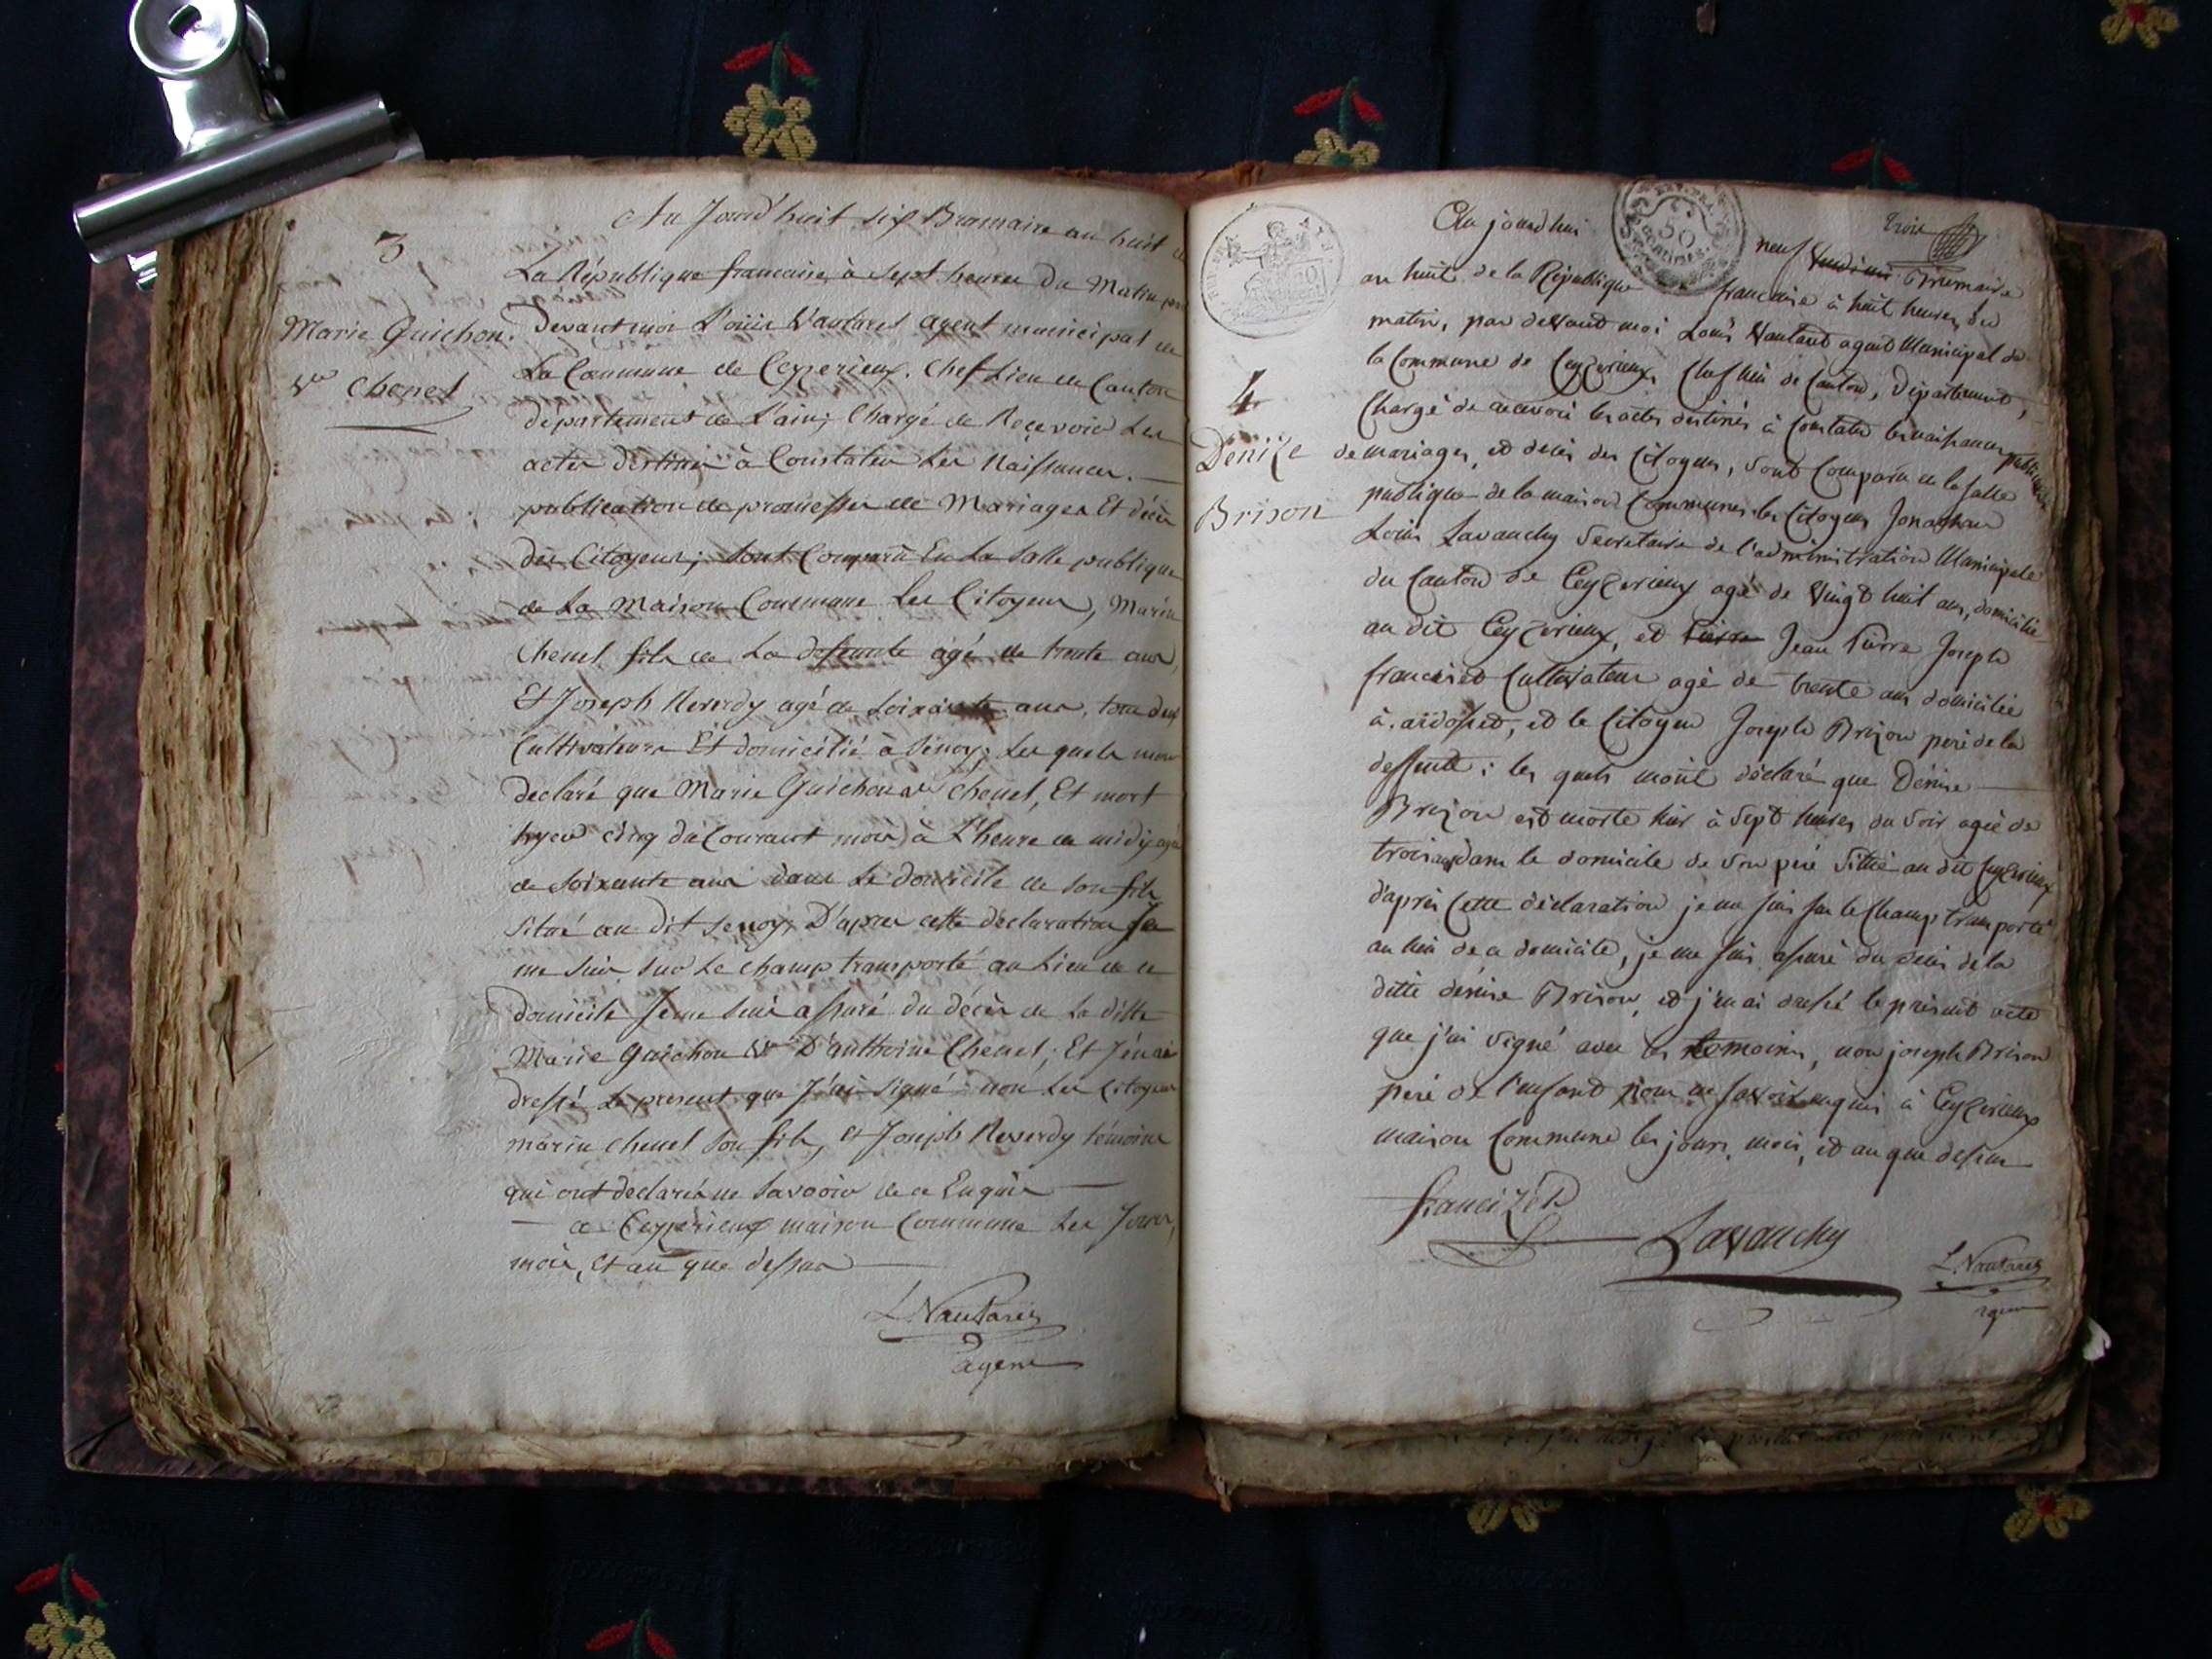 3
Marie Guichon.
Ve Chenel
Au Jourd'huit six Brumaire an huit de
La République francaise, à Sept heures Du Matin par
Devant moi Louis Vautaret agent municipal de
La Commune de Ceyzerieux. Chef Lieu de Canton
département de L'ain; Chargé de Reçevoir Les
actes destinés à Constater Les Naissances.
publication de promesses de Mariages Et décès
des Citoyens; sont Comparû En La Salle publique
de La Maison Commune Les Citoyens, Marin
Chenel fils de La deffunte agé de trente ans,
Et Joseph Reverdy agé de Soixante ans, tous deux
Cultivateurs Et domicilié à Senoy; Les quels mon
declaré que Marie Guichon ve Chenel, Et mort
hyer cinq du Courant mois à L'heure de midy agé
de Soixante ans dans Le domicile de son fils
situé au dit Senoy; D'apres cette déclaration Je
me suis sur Le champ transporté au Lieu de ce
domicile Je me suis assuré du décès de La ditte
Marie Guichon Ve D'anthoine Chenel; Et J'en ai
dressé Le present que J'ai Signé non Les Citoyens
marin Chenel son fils, et Joseph Reverdy témoins
qui ont declaré ne Savooir de ce Enquis
a Ceyzerieux maison Commune Les Jours,
mois, Et an que dessus
L. Vautaret
agent
Trois
Au jourdhui neuf Brumaire
REP. FRA.
50
CENTIMES
4
Denize
Brison
an huit de la République francaise à huit heures du
matin, par devant moi Louis Vautaret agent Municipal de
la Commune de Ceyzerieux Chef lieu de Canton, Département,
Chargé de recevoir les actes destinés à Constater les naissances publication
de mariages, et décès des Citoyens, sont Comparu en la salle
publique de la maison Commune les Citoyens Jonathan
Louis Lavanchy Secretaire de l'administration Municipale
du Canton de Ceyzerieux agé de Vingt huit ans, domicilié
au dit Ceyzerieux, et Pierre Jean Pierre Joseph
francized Cultivateur agé de trente ans domicilié
à aïdosset, et le Citoyen Joseph Brizon peré de la
deffunte; les quels mont déclaré que Dénise
Brizon est morte hier à sept heures du soir agée de
trois ans dans le domicile de son peré Situé au dit Ceyzerieux
d'après Cette déclaration je me suis sur le Champ transporté
au lieu de ce domicile, je me suis assuré du décès de la
ditte dénise Brison, et j'en ai dressé le présent acte
que j'ai signé avec les témoins, non joseph Brison
peré de l'enfant pour ne savoir enquis à Ceyzerieux
maison Commune les jours, mois, et an que dessus
francizeD
Lavanchy
L. Vautaret
agent